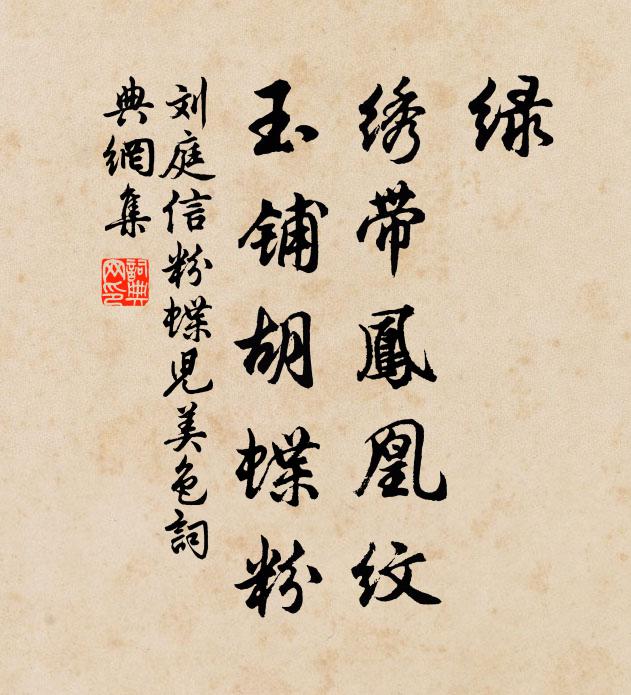 绿
绣带鳳凰纹
玉铺胡蝶粉
刘庭信粉蝶児美色詞
典網集
詞典
网印